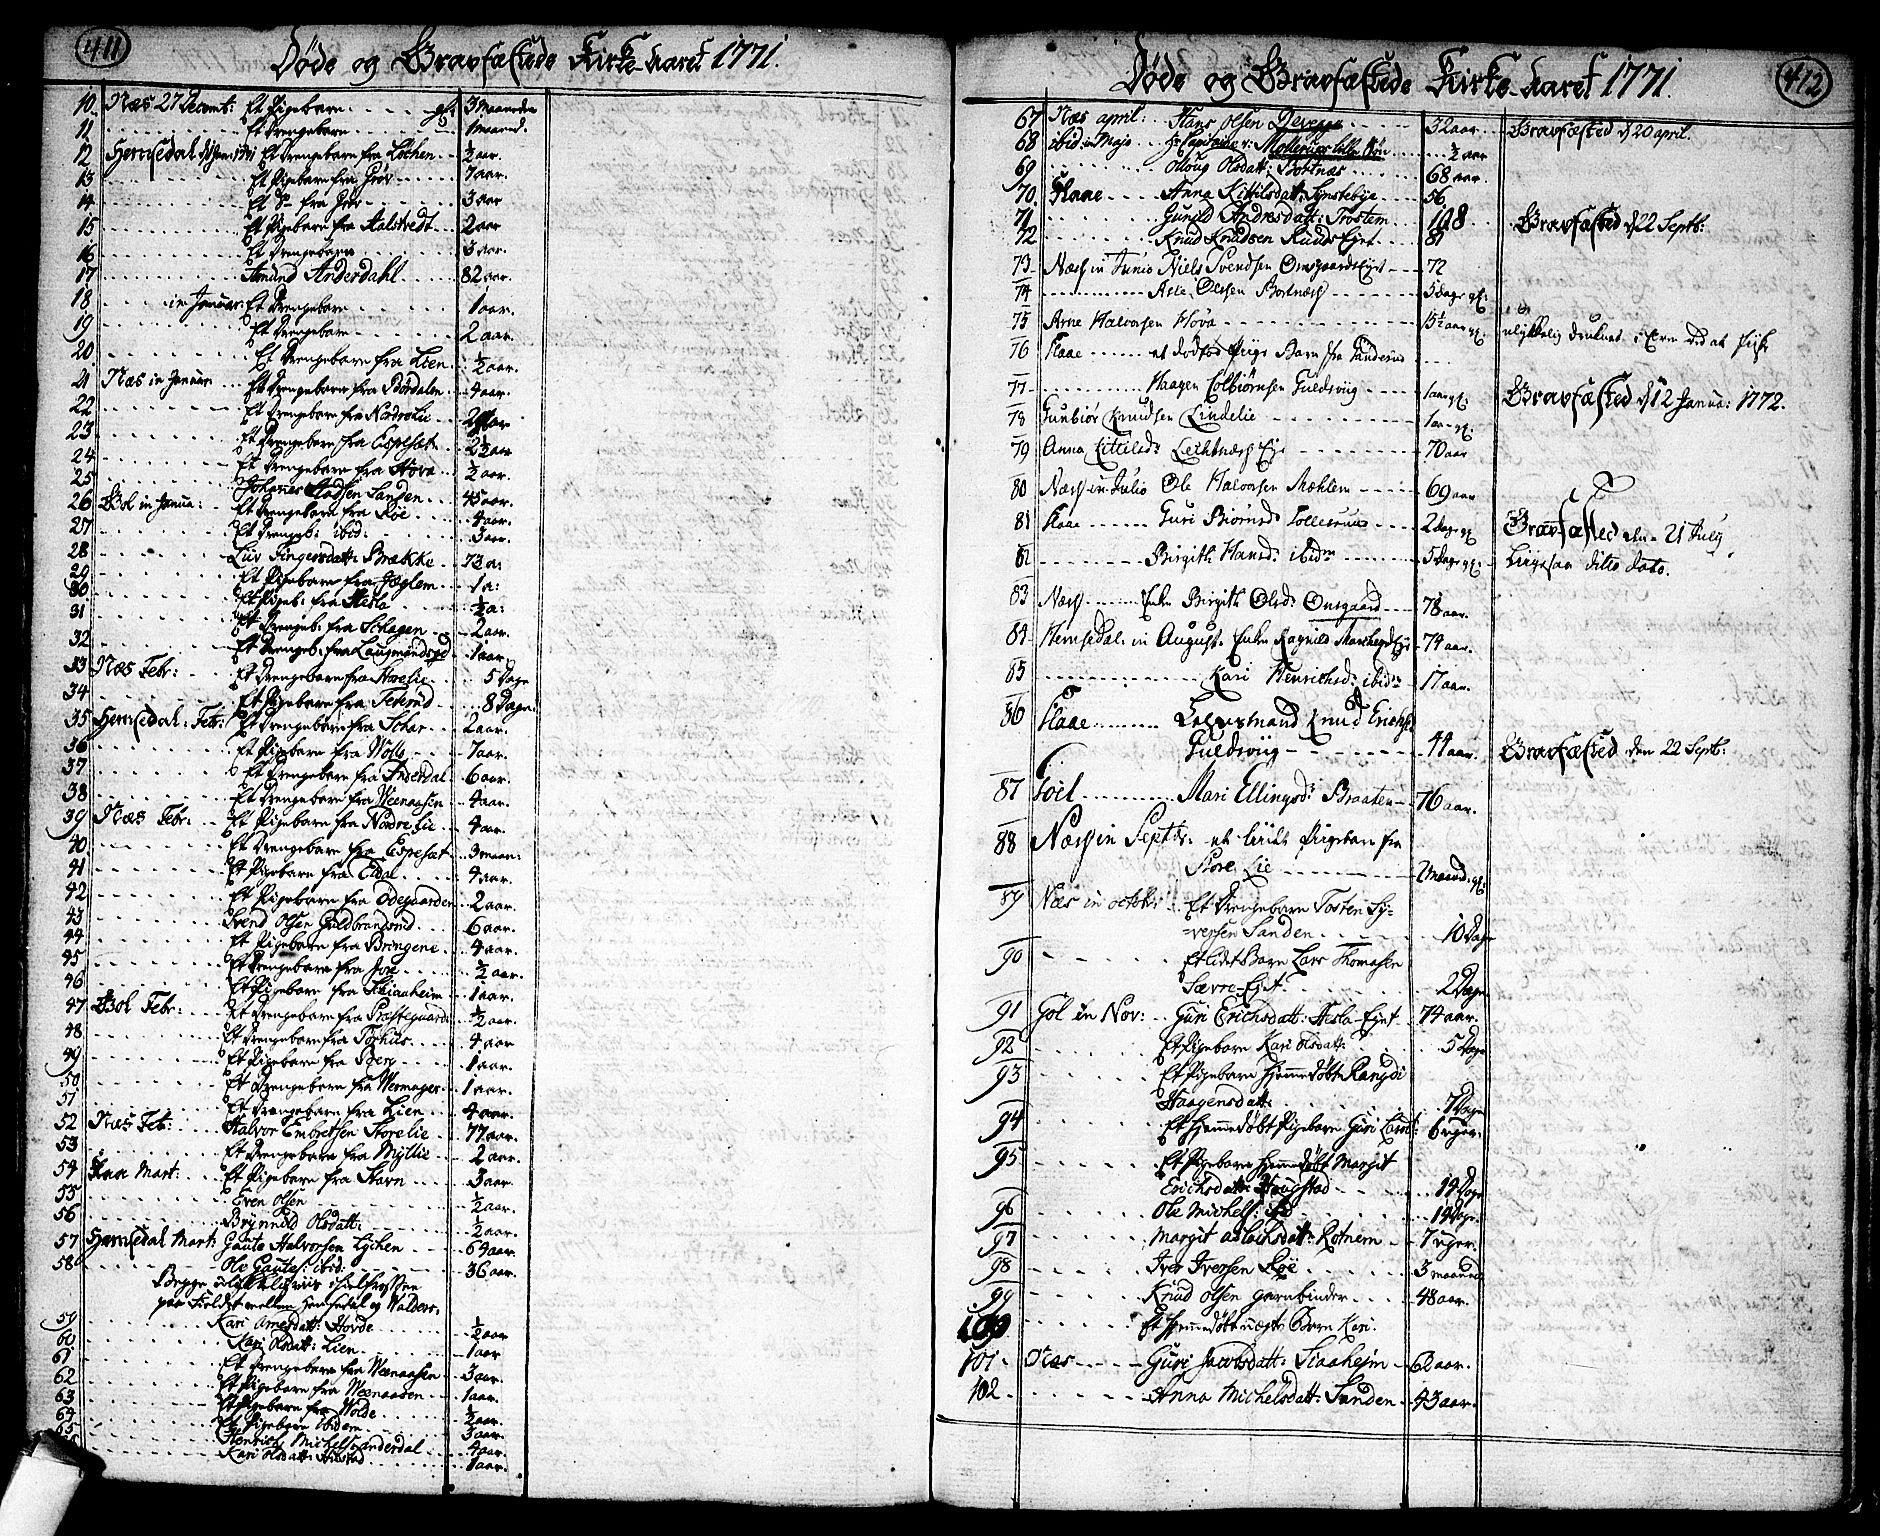 411
Døde og Gravfæstede Kirke-aaret 1771.
10. Næs 27 Decemb: Et Pigebarn 3 maaneder
11 Et Drengebarn 1 maaned.
12 Hemsedal Et Drengebarn fra Løkhen ½ aar.
13 Et Pigebarn fra Grøv 7 aar.
14 Et D° fra Grøv 3 aar
15 Et Pigebarn fra Aalstvedt 2 aar
16 Et Drengebarn 3 aar.
17 Amund Anderdahl 82 aar.
18 in Januar: Et Drengebarn 1 aar.
19 Et Drengebarn 2 aar.
20 Et Drengebarn fra Lien ½ aar.
21 Næs in Januar Et Drengebarn fra Børdalen 4 aar.
22 Et Drengebarn fra Nordrelie
23 Et Drengebarn fra Espeset 2½ aar
24 Et Drengebarn fra Hova ½ aar.
25 Johannes Sanden 45 aar.
26 Gol in Janua: Et Drengebarn fra Røe 4 aar.
27 Et Drengeb: ibid: 3 aar.
28 Liiv Fingersdatt: Brække 73 a:
29 Et Pigebarn fra Hæglem 1 a:
30 Et Pigeb: fra Hesla ½ a:
31 Et Drengeb: fra Schagen 2 aar.
32 Et Drengeb: fra 1 aar
33 Næs Febr: Et Drengebarn fra Storelie 5 Dage
34 Et Pigebarn fra 8 Dage.
35 Hemsedal: Feb: Et Drengebarn fra 2 aar.
36 Et Pigebarn fra Wolle 7 aar.
37 Et Drengebarn fra Anderdal 6 aar.
38 Et Drengebarn fra Weenaasen 4 aar.
39 Næs Febr: Et Pigebarn fra Nordrelie 4 aar.
40 Et Drengebarn fra Espeset 3 maan:
41 Et Pigebarn fra Eidal 4 aar.
42 Et Pigebarn fra Ødegaarden 2 aar.
43 Svend Olsen Guldbransrud 6 aar.
44 Et Pigebarn fra Bringene 4 aar.
45 Et Drengebarn fra ½ aar.
46 Et Pigebarn fra 1 aar.
47 Gol Febr: Et Drengebarn fra Præstegaard ½ aar.
48 Et Drengebarn fra Torhus 4 aar
49 Et Pigebarn fra Berg 1 aar.
50 Et Drengebarn fra Wermager 1 aar.
51 Et Drengebarn fra Lien 4 aar.
52 Næs Feb: Halvor Embretsen Storelie 77 aar.
53 Et Drengebarn fra Myllie 2 aar.
54 Flaa Mart: Et Pigebarn fra Stavn 3 aar.
55 Even Olsen ½ aar.
56 Brynnild Olsdatt: ½ aar.
57 Hemsedal Mart: Gaute Halvorsen Lykhen 64 aar.
58 Ole Gautes: ibid: 36 aar.
Begge
paa Fieldet mellem Hemsedal og Walders.
59 Kari Arnesdatt: Hovde ½ aar
60 Kari Olsdatt: Lien 1 aar
61 Et Drengebarn fra Weenaasen 3 aar.
62 Et Pigebarn fra Weenaasen 1 aar.
63 Et Pigebarn fra Wolde ½ aar.
64 Et Pigebarn Ibidem 3 aar.
65 Henrich Michels: Anderdal 4 aar.
Kari Olsdatt: 1 aar.
412
Døde og Gravfæstede Kirke-aaret 1771.
67 Næs april: Hans Olsen 32 aar. Gravfæsted d 20 april.
68 ibid: in Majo ½ aar
69 Olsdatt: Bortnæs 68 aar.
70. Flaae Anna Kittilsdatt: 56
71 Gunild Andresdatt: Trostem 108 Gravfæsted d 22 Septb:
72 Knud Knudsen Ruuds Ejet 81
73 Næss in Junio Niels Svendsen Omsgaards Ejet 72
74 Asle Olssen Bortnæss 5 Dage gl:
75 Arne Halvorsen Hova 15½ aar gl: ulykkelig druknet i Elven ved at fiske
76 Flaae et dødfød Piige Barn fra
77 Haagen Colbiørnsen Guldsviig 1 aar gl. Gravfæsted d 12 Janua: 1772.
78 Gunbiør Knudsen Lindelie 1 aar gl:
79 Anna Kittilsd: Leikknæss Eje 70 aar
80 Næss in Julio Ole Halvorsen Mæhlem 69 aar
81 Flaae Guri Biørnsd: 2 Dage gl. Gravfæsted den 21 July
82 Birgith Hansd: ibid^m 5 Dage gl: Ligesaa ditto dato.
83 Næss Enke Birgith Olsd: Omsgaard 78 aar.
84 Hemsedal: in August: Enke Ragnild 74 aar.
85 Kari Henrichsd: ibid^m 17 aar.
86 Flaae Knud Erichs:
Guldsviig 44 aar. Gravfæsted den 22 Septb:
87 Goel Mari Ellingsd: Braaten 76 aar.
88 Næss in Septb: et lidet Pigebarn fra
Store Lie 2 maaned: gl:
89 Næs in octobr: Et Drengebarn Tosten Sy-
versen Sanden 10 Dage
90 Et lidet Barn Lars Thomasen
Sævre-Ejet 2 Dage
91 Gol in Nov: Guri Erichsdatt: Hesla Ejet 74 aar.
92 Et Pigebarn Kari Olsdatt: 5 Dage
93 Et Pigebarn hjemmedøbt Rangdi
Haagensdatt: 7 Dage
94 Et hjemmedøbt Pigebarn Guri Larsd: 6 uger.
95 Et Pigebarn hjemmedøbt Margit
Erichsdatt: Haugstad 14 Dage
96 Ole Michels: 14 Dage.
97 Margit Aslachsdatt: Rotnem 7 uger.
98 Iver Iversen Røe 3 maaned
99 Knud Olsen garnbinder 48 aar.
100 Et hjemmedøbt uægte Barn Kari.
101. Næs Guri Jacobsdatt: Siaaheim 60 aar.
102 Anna Michelsdatt: Sanden 43 aar.